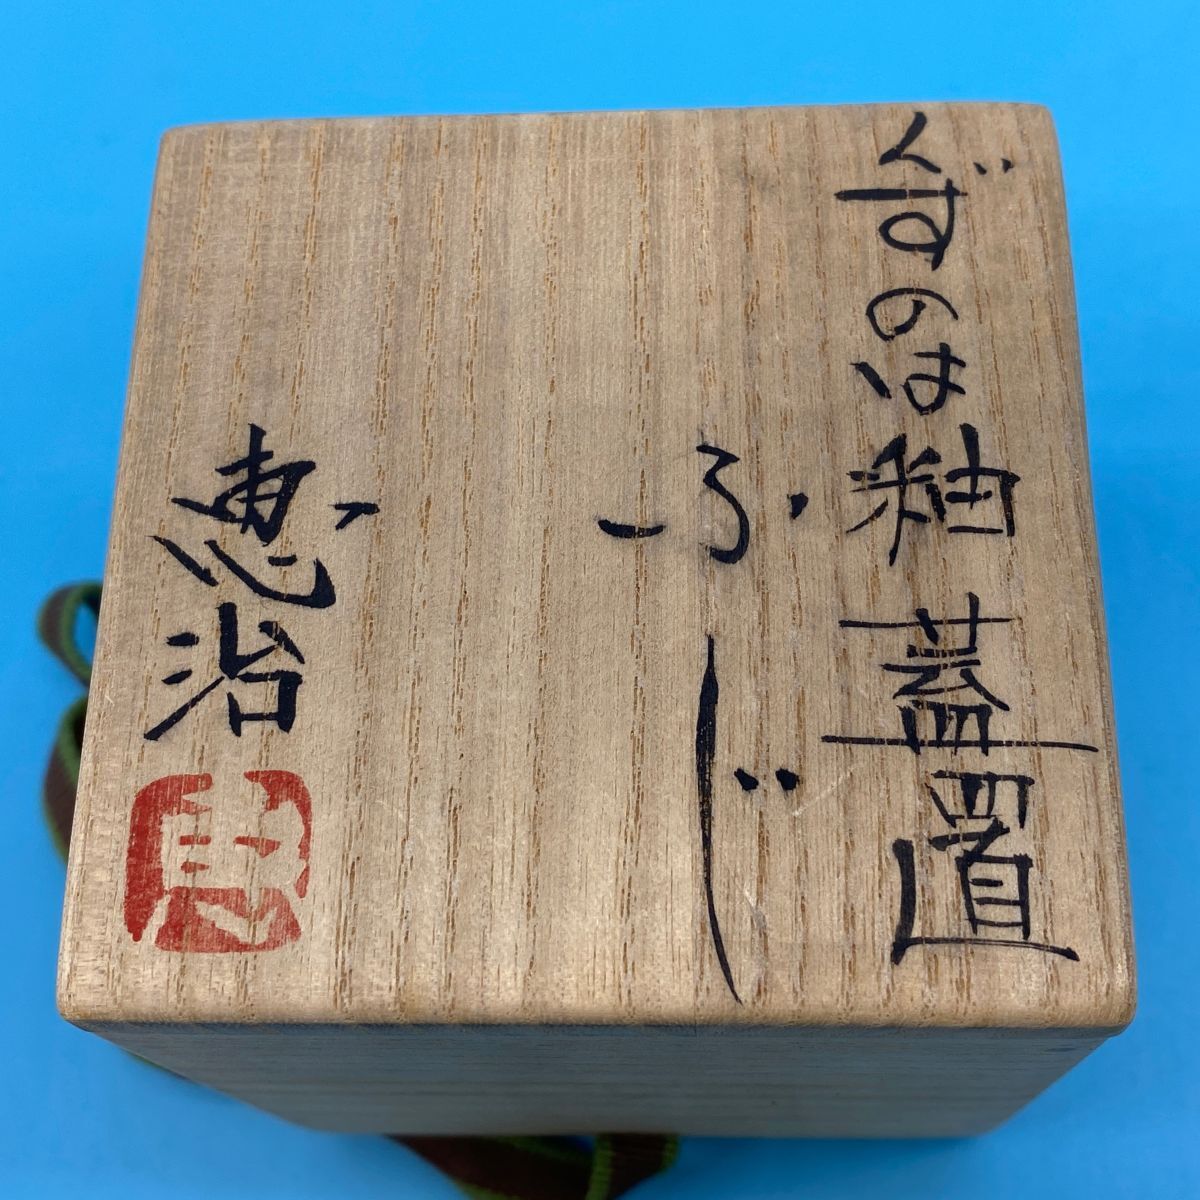 くずのは釉蓋置
ふじ
恵治
恵